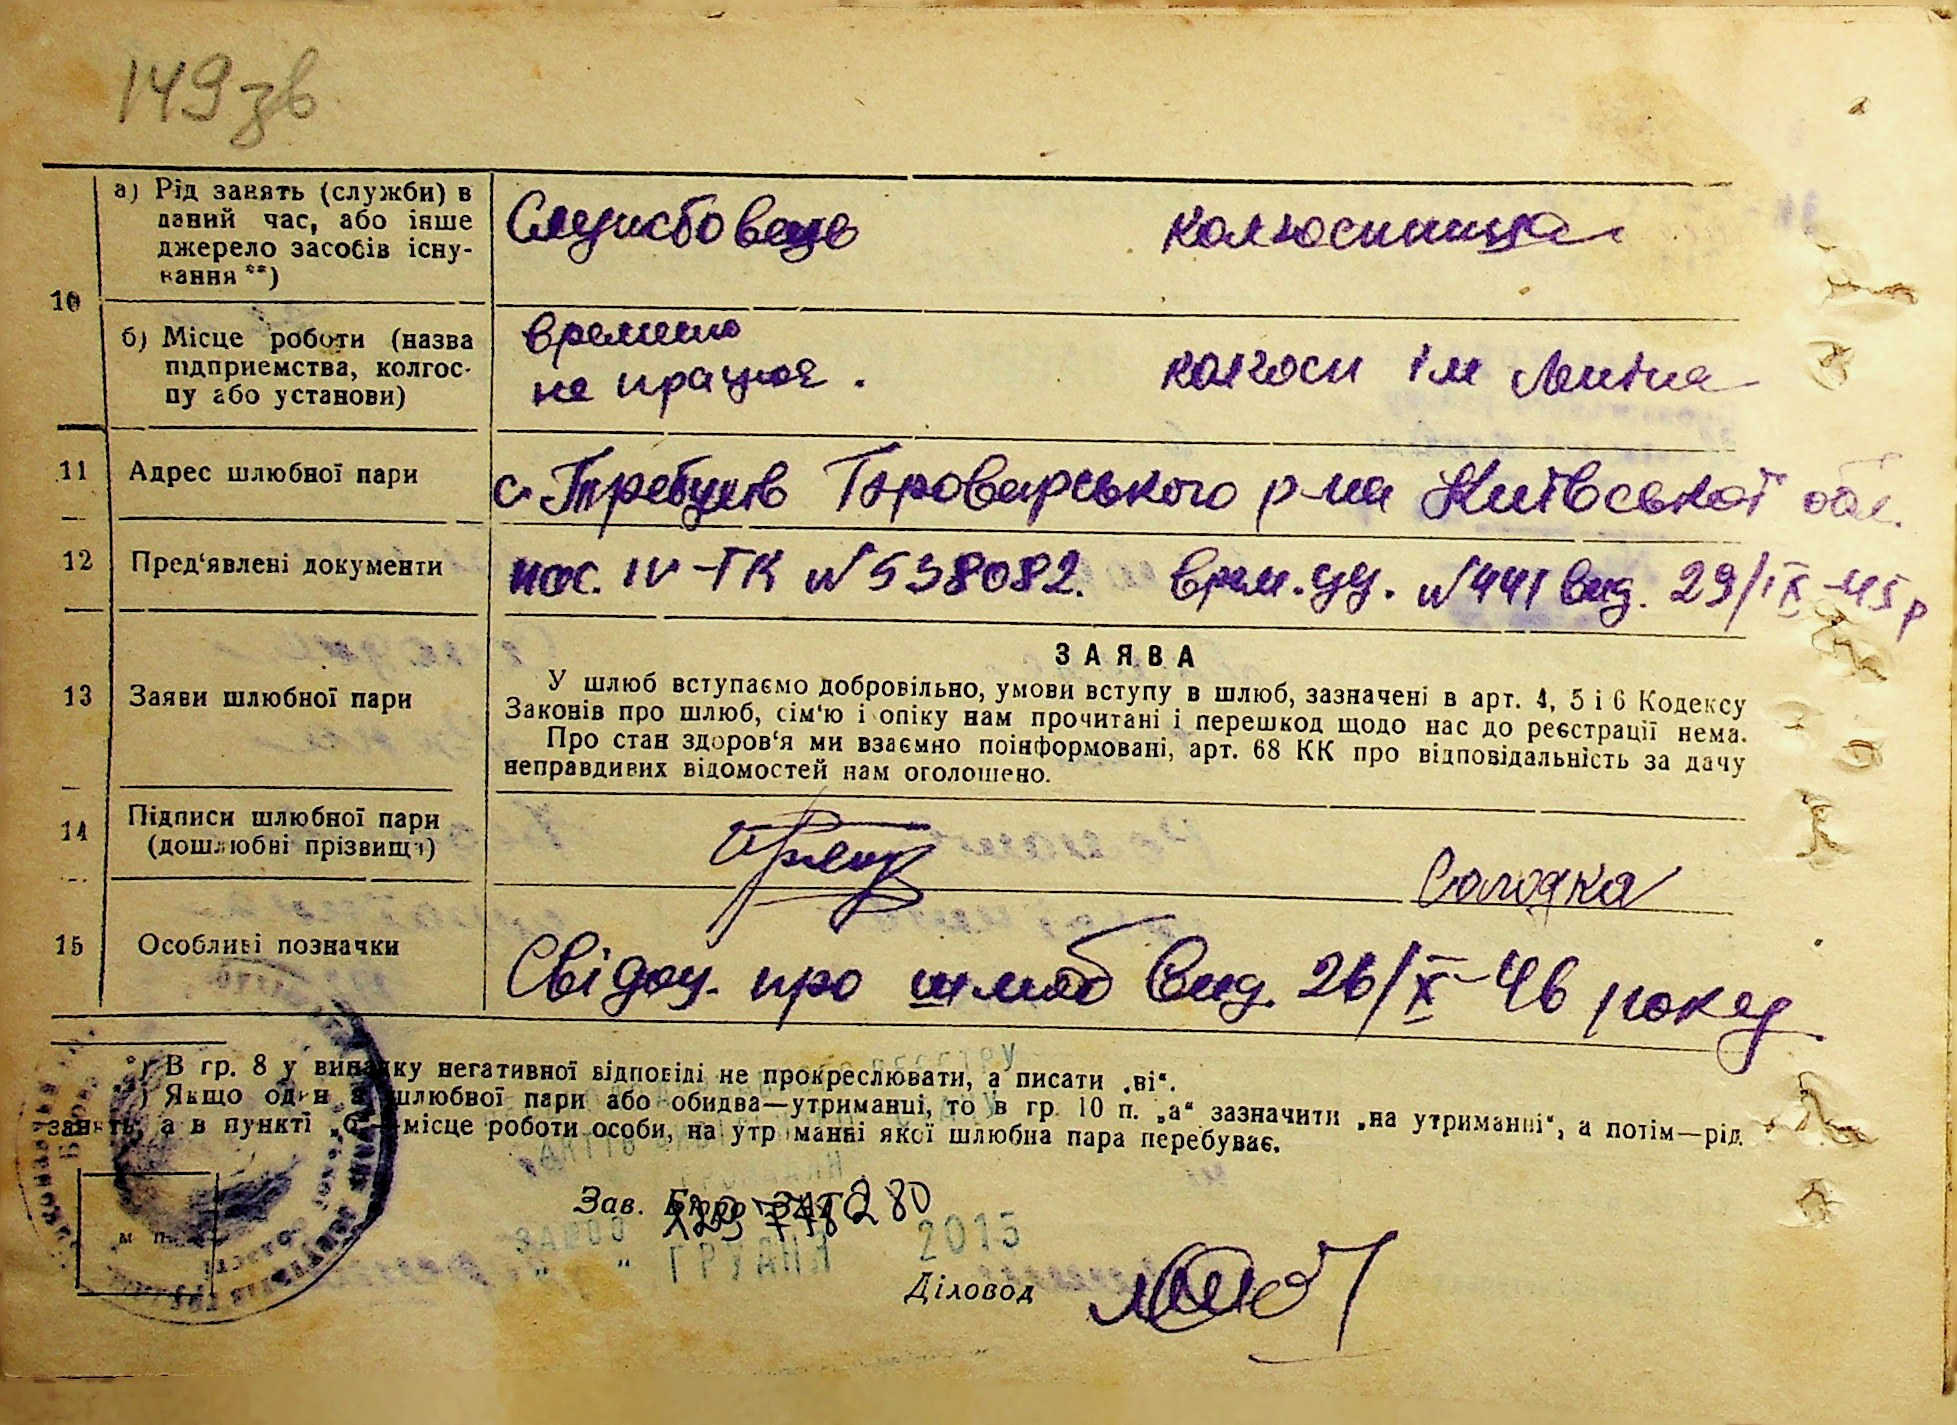 149зв
10
а) Рід занять (служби) в даний час, або інше джерело засобів існування **)
Службовець
колгоспниця
б) Місце роботи (назва підприємства, колгоспу або установи)
временно
не працює.
колгосп ім Леніна
11 Адрес шлюбної пари
с. Требухів Броварського р-на Київської обл.
12 Пред'явлені документи
пос. IV-ГК № 538082. врем. уд. № 441 вид. 29/IX-45 р
13 Заяви шлюбної пари
ЗАЯВА
У шлюб вступаємо добровільно, умови вступу в шлюб, зазначені в арт. 4, 5 і 6 Кодексу
Законів про шлюб, сім'ю і опіку нам прочитані і перешкод щодо нас до реєстрації нема.
Про стан здоров'я ми взаємно поінформовані, арт. 68 КК про відповідальність за дачу
неправдивих відомостей нам оголошено.
14 Підписи шлюбної пари (дошлюбні прізвища)
Солодка
15 Особливі позначки
Свідоц. про шлюб вид. 26/X-46 року
*) В гр. 8 у випадку негативної відповіді не прокреслювати, а писати „ні".
**) Якщо один з шлюбної пари або обидва—утриманці, то в гр. 10 п. „а" зазначити „на утриманні", а потім—рід
занять, а в пункті „б"—місце роботи особи, на утриманні якої шлюбна пара перебуває.
м п.
Зав. Бюро ЗАГС
280
" ГРУДНЯ 2015
Діловод